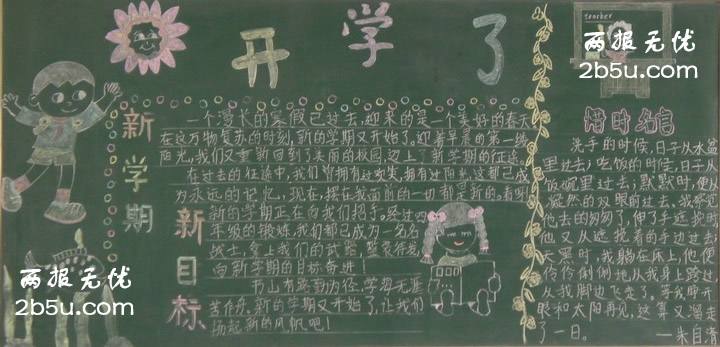 开学了
teacher
两报无优
2b5u.com
新学期
新目标
一个漫长的寒假已过去,迎来的是一个美好的春天
在这万物复苏的时刻,新的学期又开始了。迎着早晨的第一缕
阳光,我们又重新回到了美丽的校园,迈上了新学期的征途。
在过去的征途中,我们曾拥有过失,拥有过阳光,这都已成
为永远的记忆,现在,摆在我面前的一切都是新的。看啊!
新的学期正在向我们招手。经过
年级的锻炼,我们都已成为一名名
战士,拿上我们的武器,整装待发,
向新学期的目标奋进!
书山有路勤为径,学海无涯
苦作舟。新的学期又开始了,让我们
扬起新的风帆吧!
惜时名言
洗手的时候,日子从水盆
里过去;吃饭的时候,日子从
饭碗里过去;默默时,便从
凝然的双眼前过去。我察觉
他去的匆匆了,伸了手遮挽时
他又从遮挽着的手边过去
天黑时,我躺在床上,他便
伶伶俐俐地从我身上跨过
从我脚边飞走了。等我睁开
眼和太阳再见,这算又溜走
了一日。 —朱自清
两报无优
2b5u.com